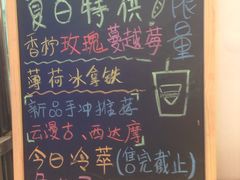 夏日特供
限量
香柠玫瑰蔓越莓
薄荷冰拿铁
新品手冲推荐
云漫古、西达摩
今日冷萃(售完截止)